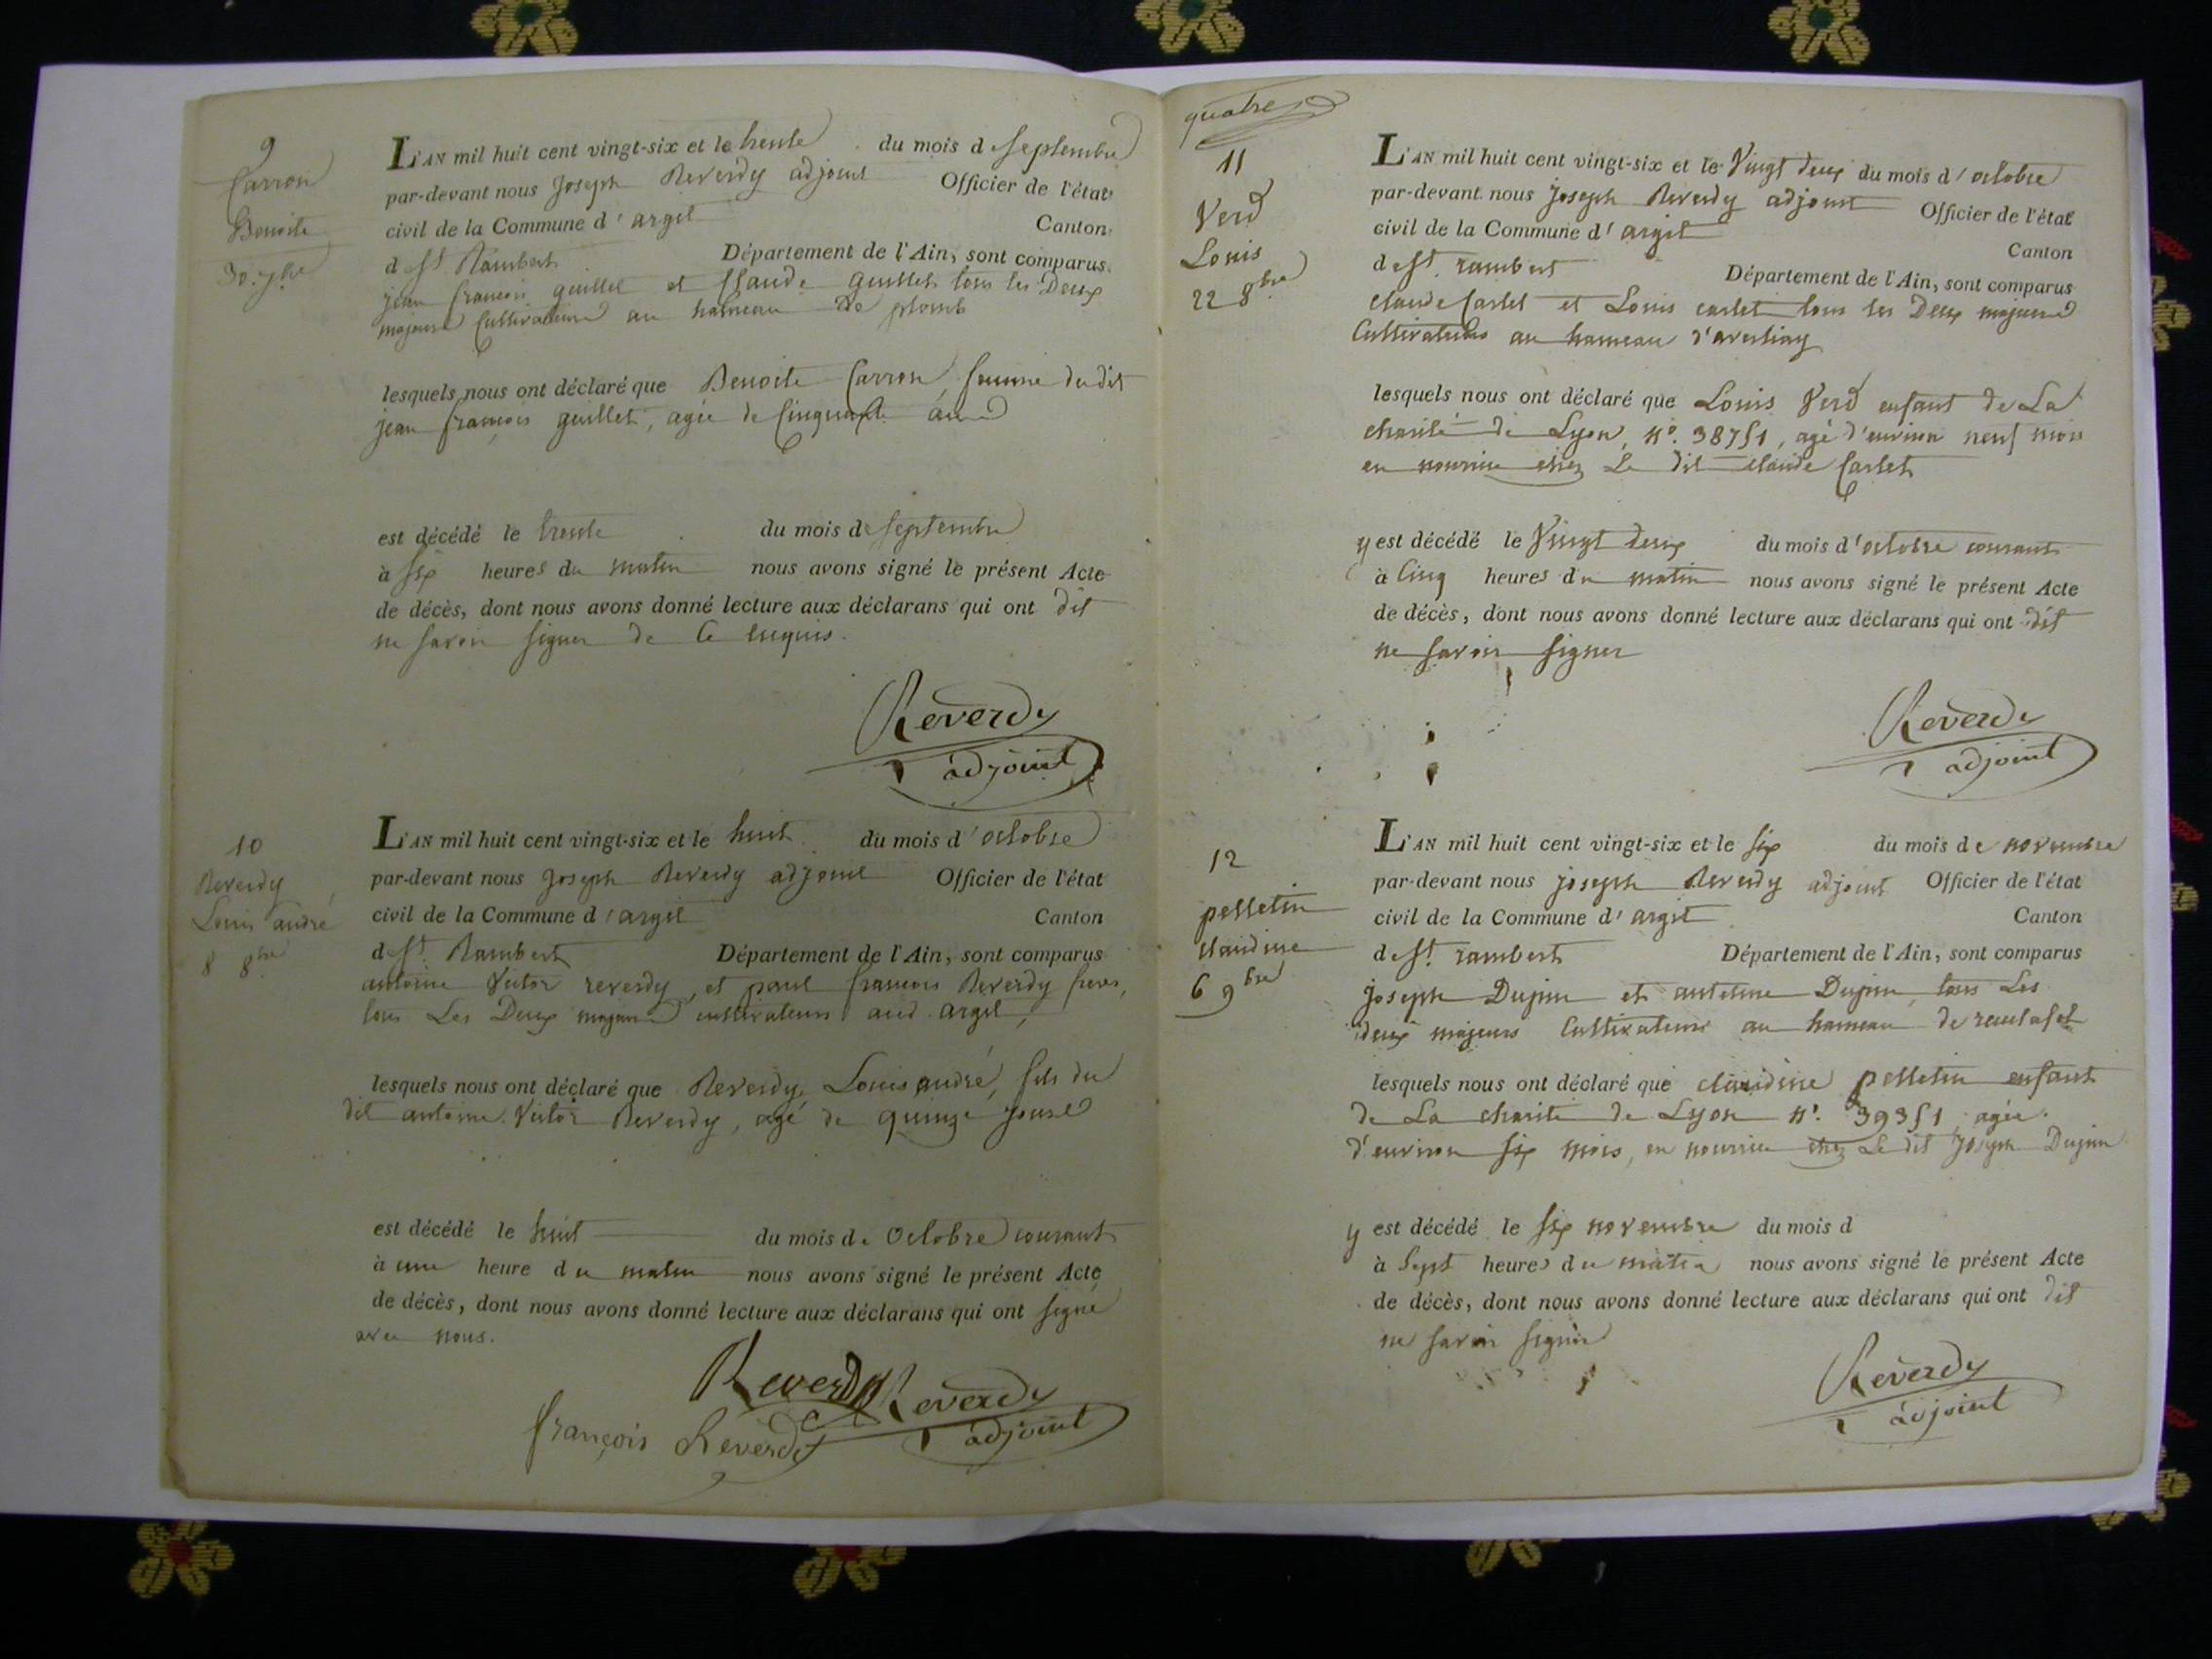 9
Carron
Benoite
30. 7bre
L'AN mil huit cent vingt-six et le trente du mois de septembre
par-devant nous Joseph Reverdy adjoint Officier de l'état
civil de la Commune d'argit Canton
de St Rambert Département de l'Ain, sont comparus
jean francois guillet et Claude guillet tous les Deux
majeurs Cultivateurs au hameau de plomb
lesquels nous ont déclaré que Benoite Carron femme du dit
jean françois guillet, agée de Cinquante ans
est décédé le trente du mois de septembre
à six heures du matin nous avons signé le présent Acte
de décès, dont nous avons donné lecture aux déclarans qui ont dit
ne savoir signer de Ce enquis.
Reverdy
adjoint
10
Reverdy
Louis andré
8 8bre
L'AN mil huit cent vingt-six et le huit du mois d'octobre
par-devant nous Joseph Reverdy adjoint Officier de l'état
civil de la Commune d'argit Canton
de St. Rambert Département de l'Ain, sont comparus
antoine Victor reverdy, et paul francois Reverdy freres,
tous Les Deux majeurs cultivateurs aud. argit,
lesquels nous ont déclaré que Reverdy Louis andré, fils du
dit antoine Victor Reverdy, agé de quinze jours
est décédé le huit du mois de Octobre courant
à une heure du matin nous avons signé le présent Acte
de décès, dont nous avons donné lecture aux déclarans qui ont signé
avec nous.
Reverdy Reverdy
adjoint
françois Reverdy
quatre
11
Verd
Louis
22 8bre
L'AN mil huit cent vingt-six et le Vingt deux du mois d'octobre
par-devant nous Joseph Reverdy adjoint Officier de l'état
civil de la Commune d'argit Canton
de St. rambert Département de l'Ain, sont comparus
Claude Carlet et Louis carlet tous les Deux majeurs
Cultivateurs au hameau d'averliay
lesquels nous ont déclaré que Louis Verd enfant de La
charité de Lyon, N°. 38751, agé d'environ neuf mois
en nourrice chez Le dit Claude Carlet
y est décédé le Vingt deux du mois d'octobre courant
à Cinq heures du matin nous avons signé le présent Acte
de décès, dont nous avons donné lecture aux déclarans qui ont dit
ne savoir signer
Reverdy
adjoint
12
pelletin
Claudine
6 9bre
L'AN mil huit cent vingt-six et le six du mois de novembre
par-devant nous joseph Reverdy adjoint Officier de l'état
civil de la Commune d'argit Canton
de St. rambert Département de l'Ain, sont comparus
joseph Dujin et antoine Dujin, tous Les
deux majeurs Cultivateurs au hameau de
lesquels nous ont déclaré que claudine pelletin enfant
de La charité de Lyon N°. 39351 agée
d'environ six mois, en nourrice chez Le dit Joseph Dujin
y est décédé le six novembre du mois d
à Sept heures du matin nous avons signé le présent Acte
de décès, dont nous avons donné lecture aux déclarans qui ont dit
ne savoir signer
Reverdy
adjoint